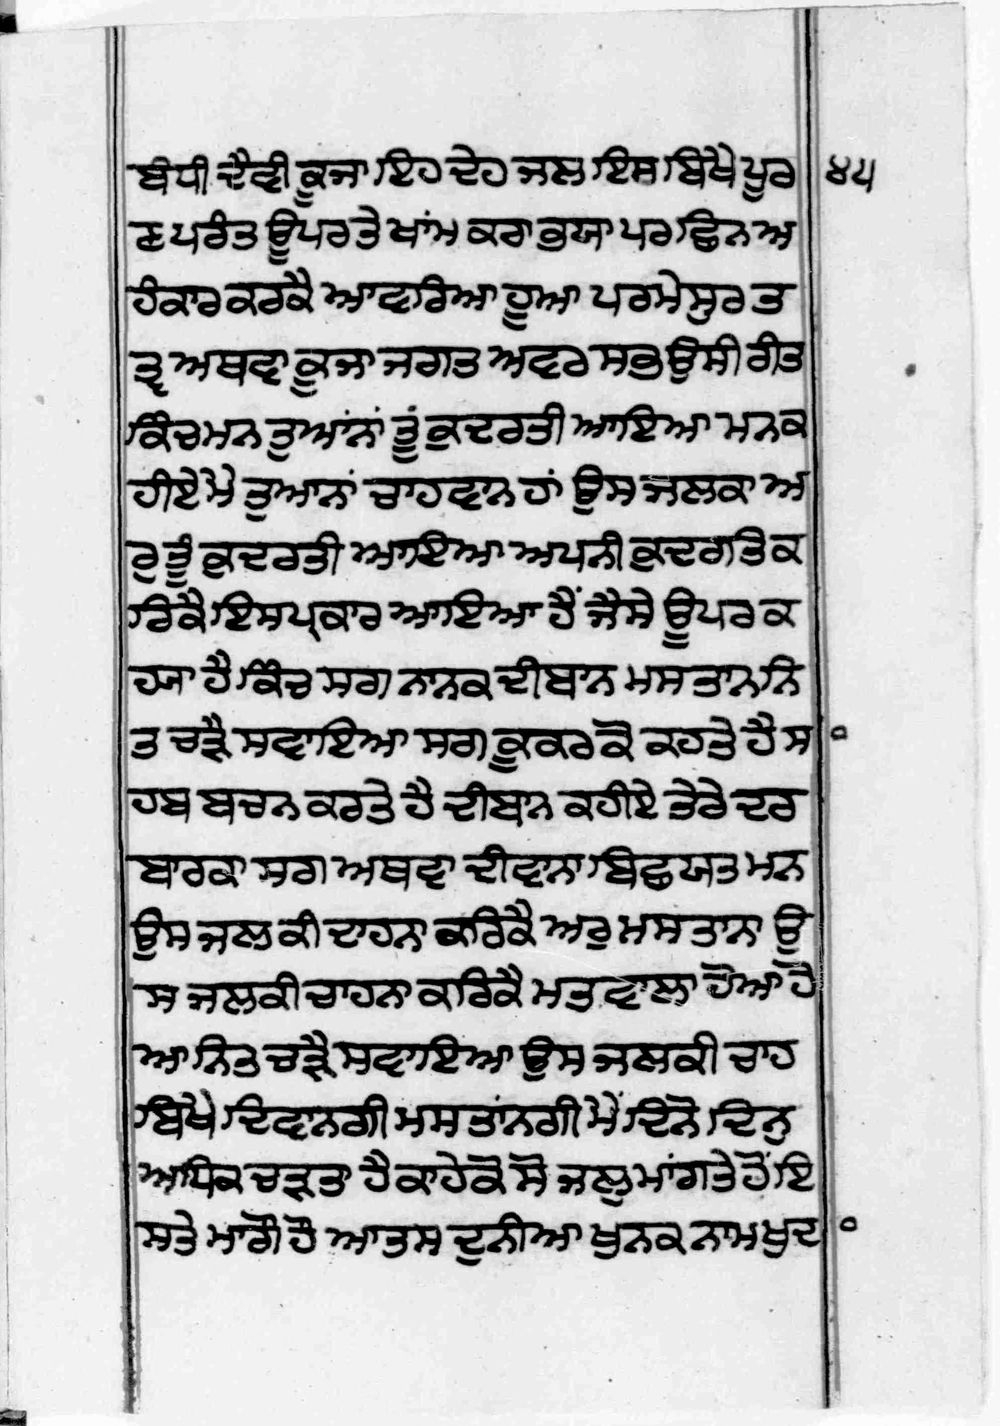 ਬੰਧੀ ਦੈਵੀ ਕੂਜਾ ਇਹ ਦੇਹ ਜਲ ਇਸ ਬਿਖੈ ਪੂਰ ੪੫
ਣ ਪਰੰਤ ਊਪਰ ਤੇ ਖਾਂਮ ਕਰਾ ਭਯਾ ਪਰਛਿਨ ਅ
ਹੰਕਾਰ ਕਰਕੈ ਆਵਰਿਆ ਹੂਆ ਪਰਮੇਸੁਰ ਤ
ਤ੍ਵ ਅਥਵਾ ਕੂਜਾ ਜਗਤ ਅਵਰ ਸਭ ਉਸੀ ਰੀਤ
ਕਿੰਚ ਮਨ ਤੁਆਂਨਾਂ ਤੂੰ ਕੁਦਰਤੀ ਆਇਆ ਮਨ ਕ
ਹੀਏ ਮੈ ਤੁਆਨਾਂ ਚਾਹਵਾਨ ਹਾਂ ਉਸ ਜਲ ਕਾ ਅ
ਰੁ ਤੂੰ ਕੁਦਰਤੀ ਆਇਆ ਅਪਨੀ ਕੁਦਰਤਿ ਕ
ਰਿਕੈ ਇਸ ਪ੍ਰਕਾਰ ਆਇਆ ਹੈਂ ਜੈਸੇ ਊਪਰ ਕ
ਹਯਾ ਹੈ ਕਿੰਚ ਸਗ ਨਾਨਕ ਦੀਬਾਨ ਮਸਤਾਨ ਨਿ
ਤ ਚੜੈ ਸਵਾਇਆ ਸਗ ਕੂਕਰ ਕੋ ਕਹਤੇ ਹੈ ਸ °
ਹਬ ਬਚਨ ਕਰਤੇ ਹੈ ਦੀਬਾਨ ਕਹੀਏ ਤੇਰੇ ਦਰ
ਬਾਰ ਕਾ ਸਗ ਅਥਵਾ ਦੀਵਾਨਾ ਬਿਛਯਤ ਮਨ
ਉਸ ਜਲ ਕੀ ਦਾਹਨਾ ਕਰਿਕੈ ਅਰੁ ਮਸਤਾਨਾ ਉ
ਸ ਜਲ ਕੀ ਚਾਹਨਾ ਕਰਿਕੈ ਮਤਵਾਲਾ ਹੋਆ ਹੈ
ਆ ਨਿਤ ਚੜੈ ਸਵਾਇਆ ਉਸ ਜਲ ਕੀ ਚਾਹ
ਬਿਖੈ ਦਿਵਾਨਗੀ ਮਸਤਾਂਨਗੀ ਮੈਂ ਦਿਨੋ ਦਿਨੁ
ਅਧਿਕ ਚੜਤਾ ਹੈ ਕਾਹੇ ਕੋ ਸੋ ਜਲੁ ਮਾਂਗਤੇ ਹੋਂ ਇ
ਸਤੇ ਮਾਗੋ ਹੋ ਆਤਸ ਦੁਨੀਆ ਖੁਨਕ ਨਾਮ ਖੁਦ °